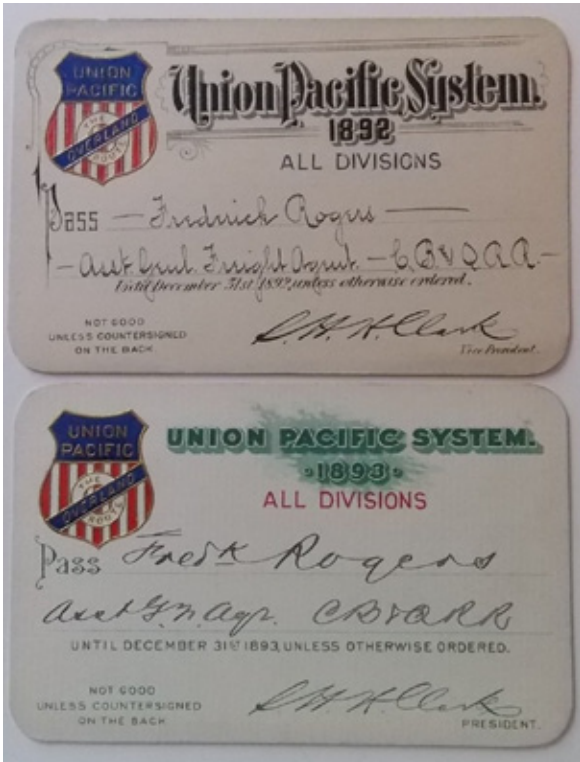 UNION
PACIFIC
THE
OVERLAND
ROUTE
Union Pacific System.
1892
ALL DIVISIONS
Pass — Fredrick Rogers —
— Asst Genl. Freight Agent. — C. B & Q R R. —
Until December 31st 1892, unless otherwise ordered.
NOT GOOD
UNLESS COUNTERSIGNED
ON THE BACK
S. H. H. Clark
Vice President.
UNION
PACIFIC
THE
OVERLAND
ROUTE
UNION PACIFIC SYSTEM.
1893
ALL DIVISIONS
Pass Fredk Rogers
Asst G. F. Agt. CB&QRR
UNTIL DECEMBER 31ST 1893, UNLESS OTHERWISE ORDERED.
NOT GOOD
UNLESS COUNTERSIGNED
ON THE BACK
S. H. H. Clark
PRESIDENT.